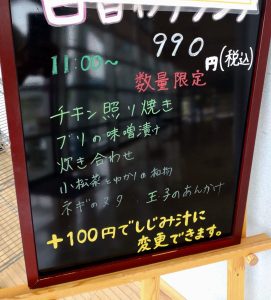 990円(税込)
11:00〜
数量限定
チキン照り焼き
ブリの味噌漬け
炊き合わせ
小松菜とゆかりの和物
ネギのヌタ 玉子のあんかけ
+100円でしじみ汁に
変更できます。